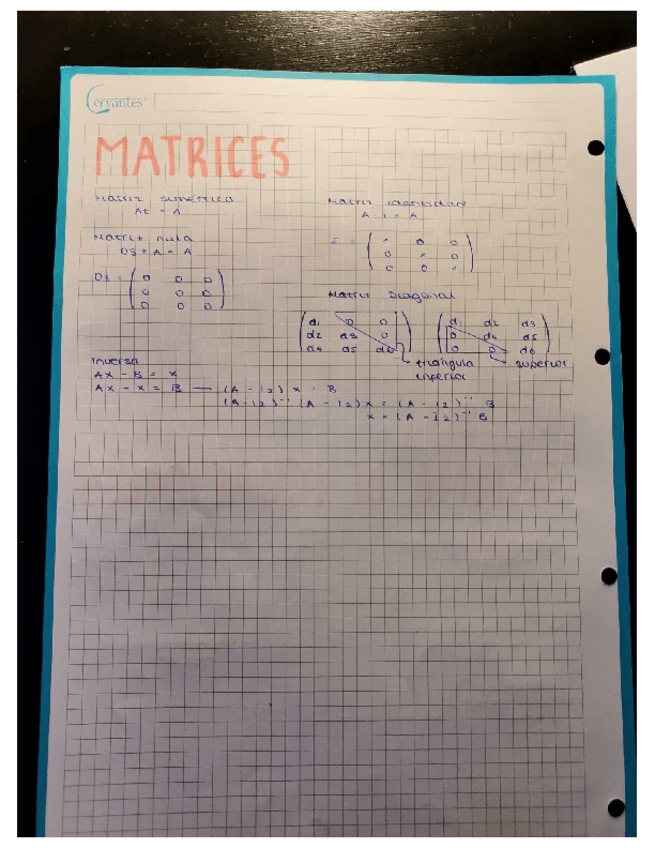 Cervantes
MATRICES
Matriz simétrica
At = A
Matriz nula
O3 + A = A
O3 = ( 0 0 0
0 0 0
0 0 0 )
Matriz identidad
A · I = A
I = ( 1 0 0
0 1 0
0 0 1 )
Matriz Diagonal
( d1 0 0
d2 d3 0
d4 d5 d6 )
triángula
inferior
( d1 d2 d3
0 d4 d5
0 0 d6 )
superior
Inversa
AX - B = X
AX - X = B — (A - I2) X = B
(A - I2)⁻¹ (A - I2) X = (A - I2)⁻¹ B
X = (A - I2)⁻¹ B